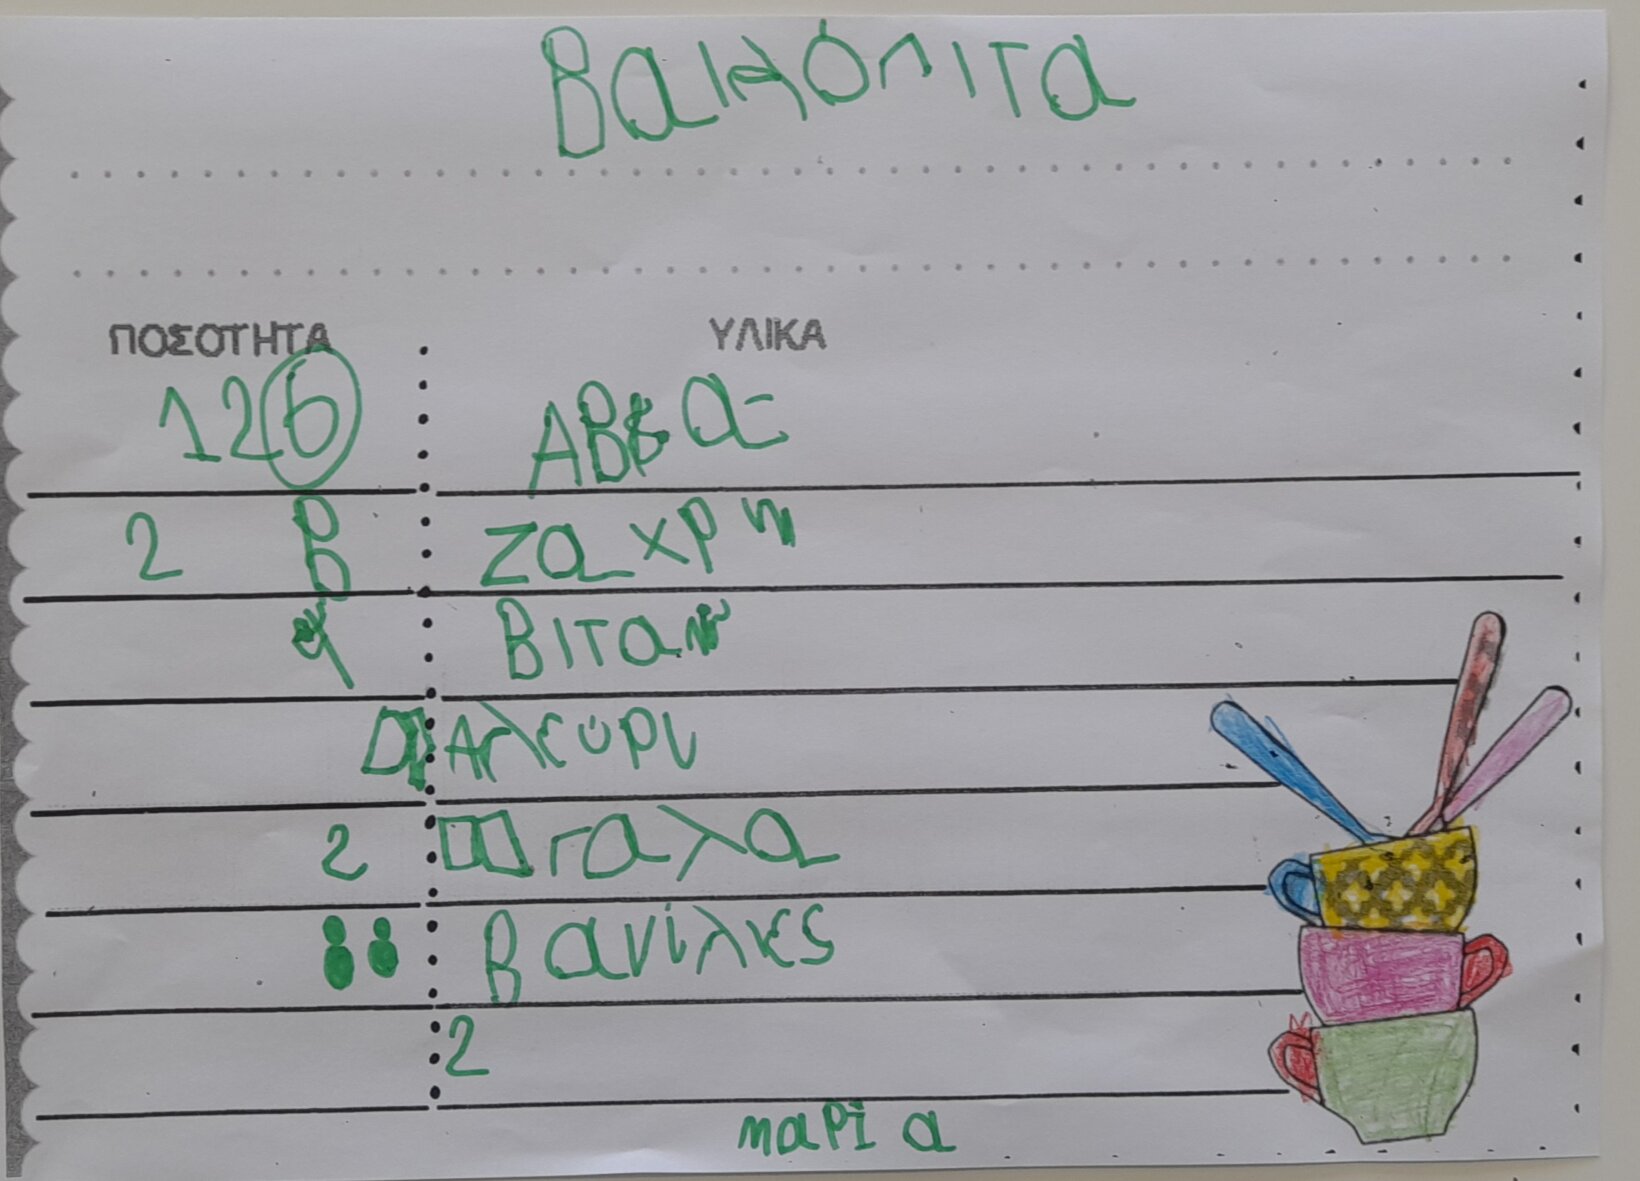 Βαιλόπιτα
ΠΟΣΟΤΗΤΑ ΥΛΙΚΑ
126
2 β ζαχρη
Βιταμ
Αλευρι
2 γαλα
βανίλιες
2
μαρία